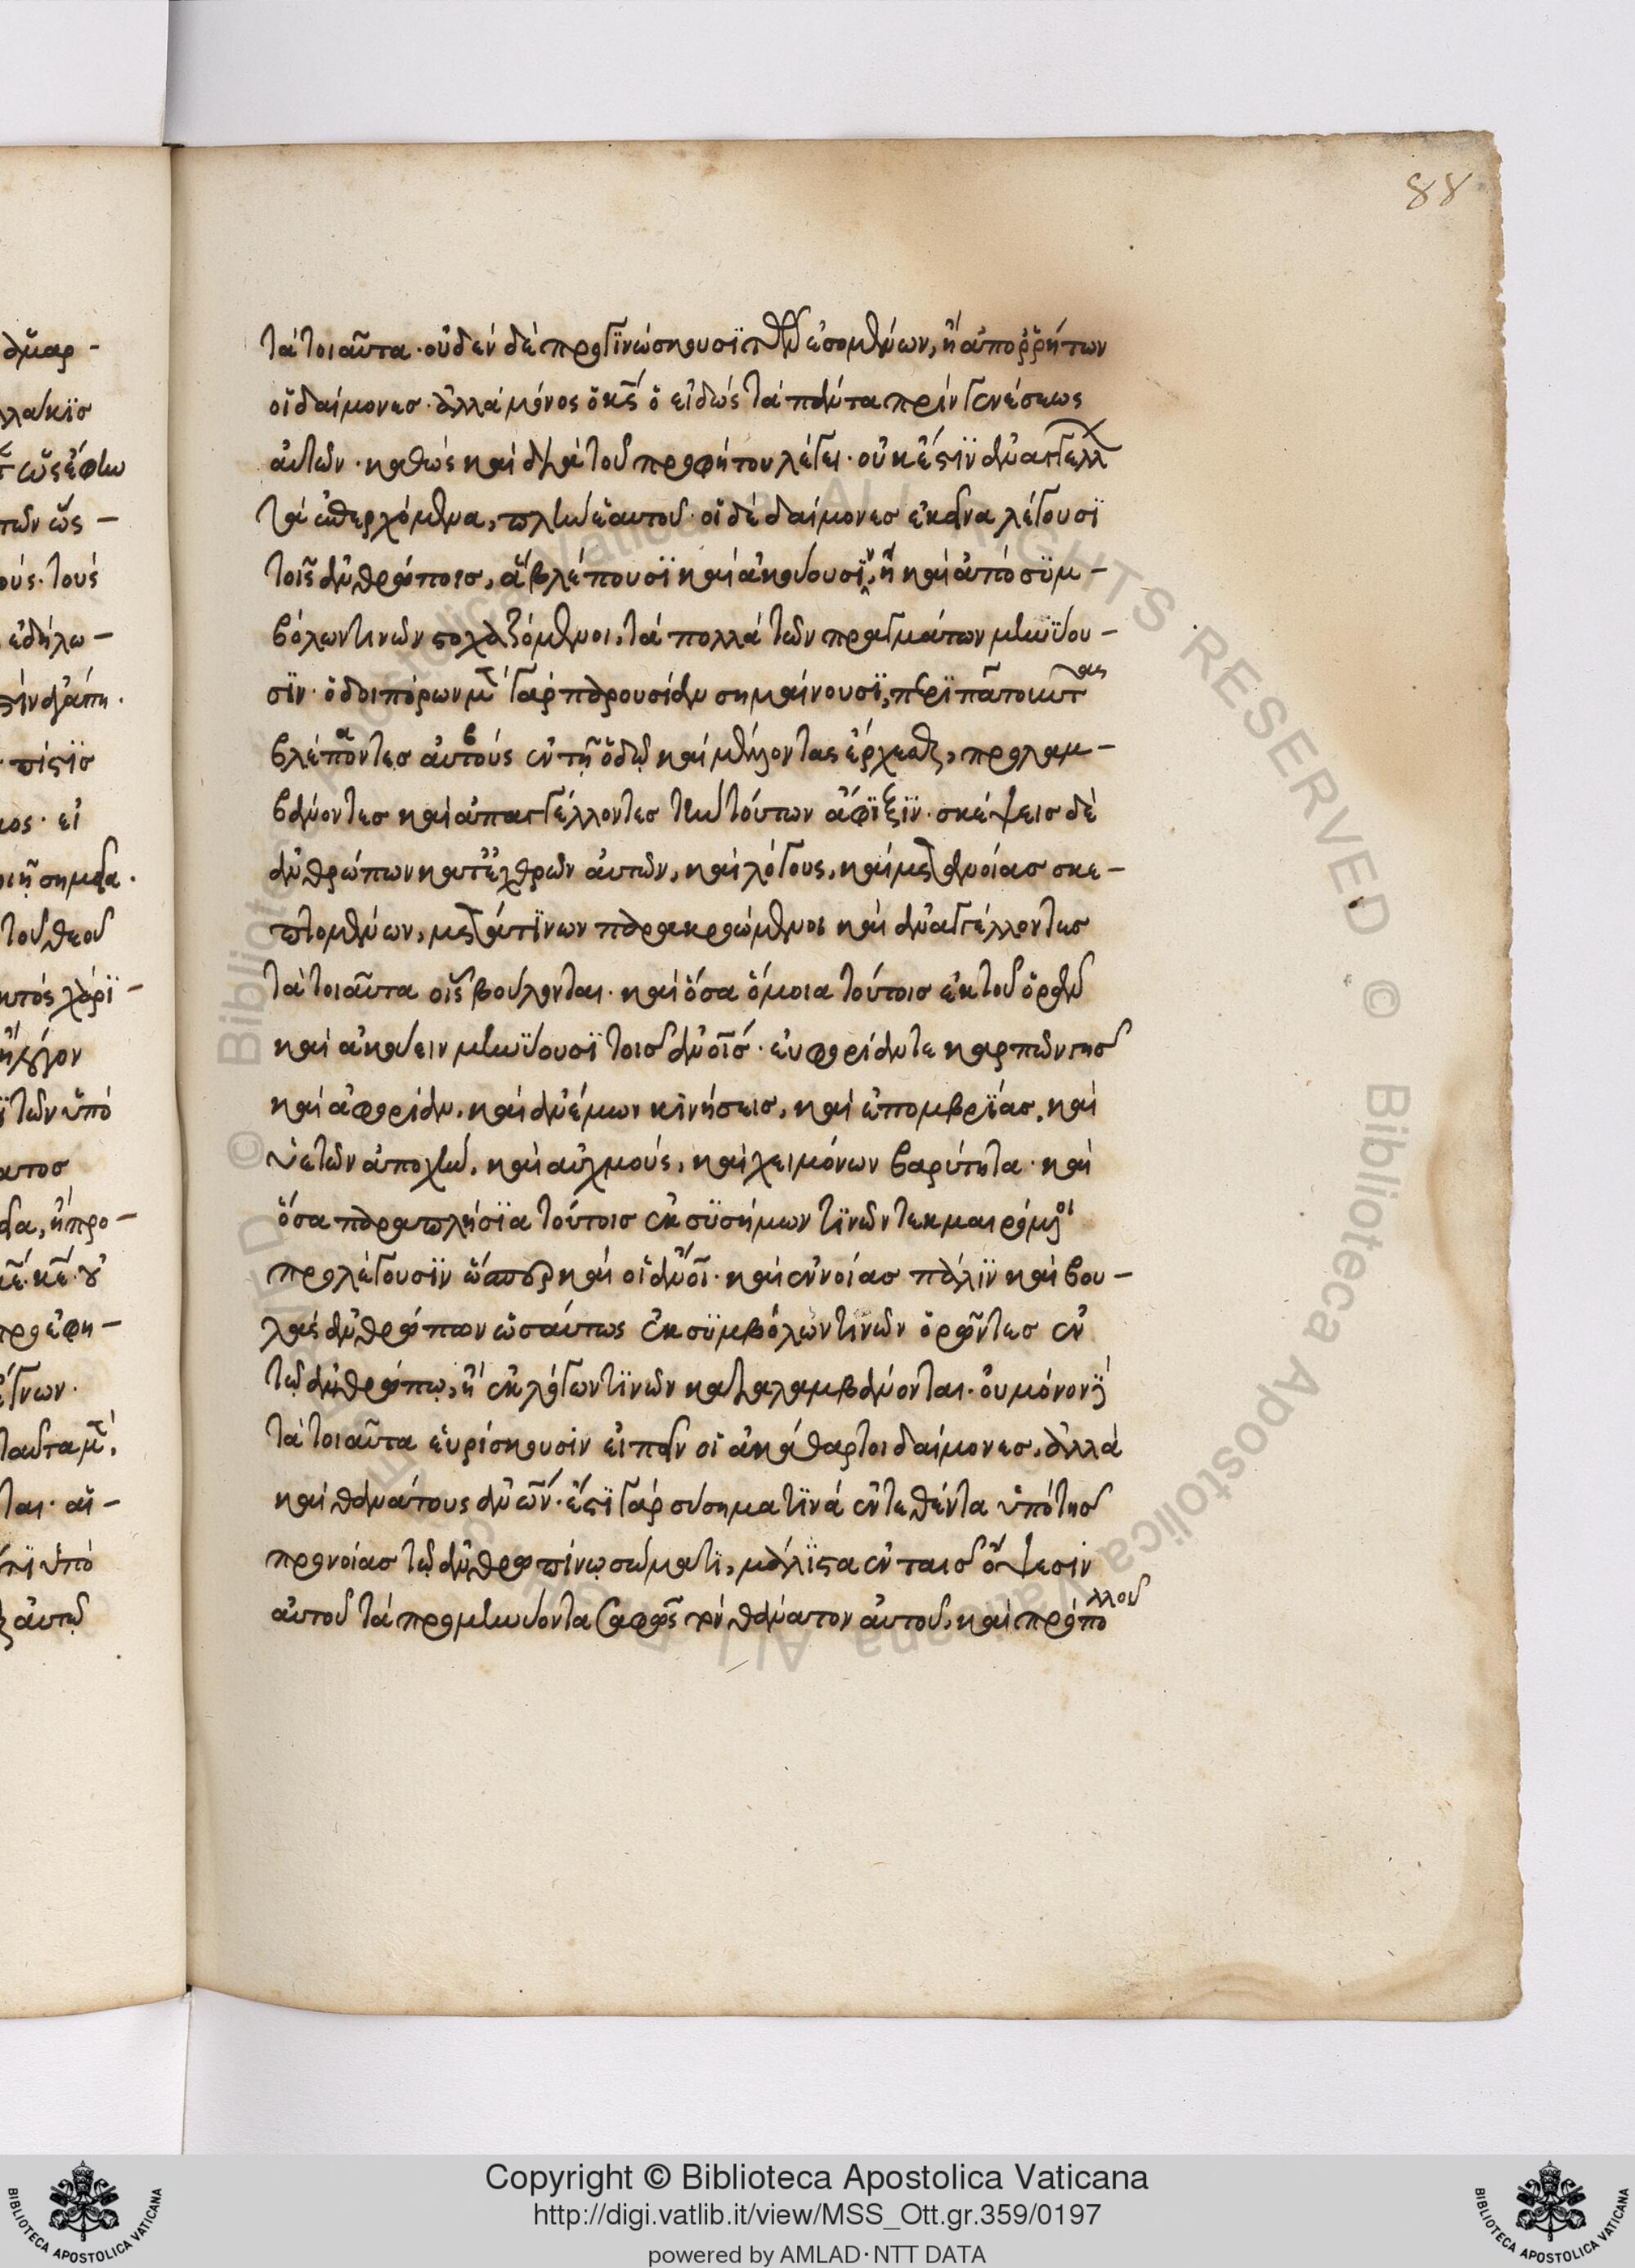 88
τὰ τοιαῦτα· οὐδὲν δὲ προγϊνώσκουσϊ τῶν ἐσομένων, ἢ ἀπορρήτων
οἱ δαίμονες· ἀλλὰ μόνος ὁ κς ὁ εἰδὼς τὰ πάντα πρὶν γενέσεως
αὐτῶν· καθὼς καὶ διὰ τοῦ προφήτου λέγει· οὐκ ἔστϊν ἀναγγελλ
τὰ ἐπερχόμενα, πλὴν ἐμαυτοῦ· οἱ δὲ δαίμονες ἐκεῖνα λέγουσϊ
τοῖς ἀνθρώποις, ἃ βλέπουσϊ καὶ ἀκούουσϊν, ἢ καὶ ἀπὸ σϋμ –
βόλων τινῶν στοχαζόμενοι, τὰ πολλὰ τῶν πραγμάτων μηνϋου –
σϊν· ὁδοιπόρων μὲν γὰρ παρουσίαν σημαίνουσϊ, περιπατοῦντας
βλέποντες αὐτοὺς ἐν τῇ ὁδῷ καὶ μέλλοντας ἔρχεσθαι, προλαμ –
βάνοντες καὶ ἀπαγγέλλοντες τὴν τούτων ἄφϊξϊν· σκέψεις δὲ
ἀνθρώπων κατ' ἐχθρῶν αὐτῶν, καὶ λόγους, καὶ μετ' ἀνοίας σκε –
πτομένων, μετά τϊνων παρακροώμενοι καὶ ἀναγγέλλοντες
τὰ τοιαῦτα οἷς βούλονται· καὶ ὅσα ὅμοια τούτοις ἐκ τοῦ ὁρᾶν
καὶ ἀκούειν μηνϋουσϊ τοῖς ἀνοις· εὐφορίαν τε καρπῶν γῆς
καὶ ἀφορίαν, καὶ ἀνέμων κϊνήσεις, καὶ ἐπομβρϊας, καὶ
ὑετῶν ἀποχὴν, καὶ αὐχμοὺς, καὶ χειμόνων βαρύτητα· καὶ
ὅσα παραπλήσϊα τούτοις ἐκ σϋσήμων τϊνῶν τεκμαιρόμενοι
προλέγουσϊν ὥσπερ καὶ οἱ ἀνοι· καὶ ἐννοίας πάλϊν καὶ βου –
λὰς ἀνθρώπων ὡσαύτως ἐκ σϋμβόλων τινῶν ὁρῶντες ἐν
τῷ ἀνθρώπῳ, ἢ ἐκ λόγων τϊνῶν καταλαμβάνονται· οὐ μόνον δὲ
τὰ τοιαῦτα εὑρίσκουσιν εἰπεῖν οἱ ἀκάθαρτοι δαίμονες, ἀλλὰ
καὶ θανάτους ἀνων· ἔστϊ γὰρ σύσημα τϊνὰ ἐντεθέντα ὑπὸ τῆς
προνοίας τῷ ἀνθρωπίνῳ σώματϊ, μάλϊστα ἐν ταῖς ὄψεσιν
αὐτοῦ τὰ προμηνύοντα σαφῶς τὸν θάνατον αὐτοῦ, καὶ πρὸ πολλοῦ
Copyright © Biblioteca Apostolica Vaticana
http://digi.vatlib.it/view/MSS_Ott.gr.359/0197
powered by AMLAD·NTT DATA
BIBLIOTECA APOSTOLICA VATICANA
BIBLIOTECA APOSTOLICA VATICANA